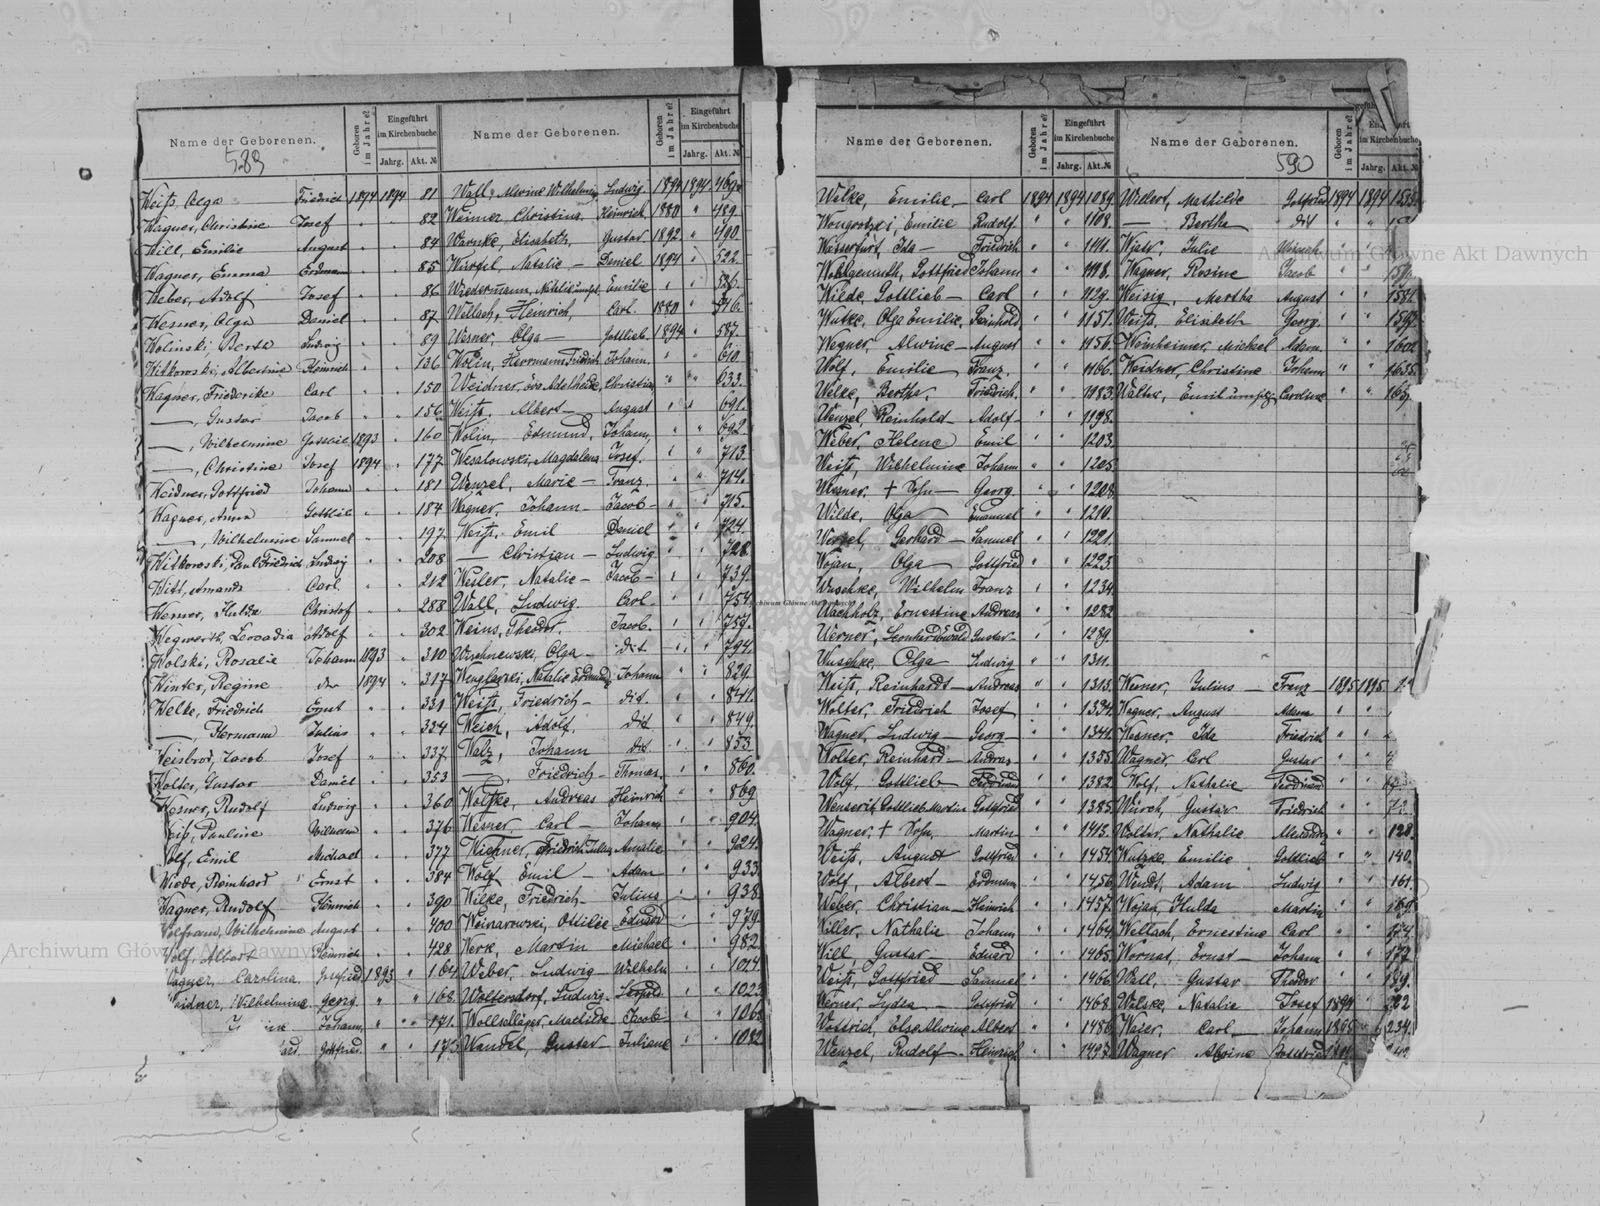 Name der Geborenen. Geboren im Jahre? Eingeführt im Kirchenbuche Jahrg. Akt. №
589
Weiß, Olga Friedrich 1894 1894 81
Wagner, Christine Josef " " 82
Will, Emilie August " " 84
Wagner, Emma Erdmann " " 85
Weber, Adolf Josef " " 86
Wesner, Olga Daniel " " 87
Wolinski, Berta Ludwig " " 89
Witkowski, Albertine Heinrich " " 136
Wagner, Friederike Carl " " 150
—, Gustav Jacob " " 156
—, Wilhelmine Gottlieb 1893 " 160
—, Christine Josef 1894 " 177
Weidner, Gottfried Johann " " 181
Wagner, Anna Gottlieb " " 184
—, Wilhelmine Samuel " " 197
Witkowski, Paul Friedrich Ludwig " " 208
Witt, Amanda Carl " " 212
Werner, Hulda Christof " " 288
Wegwerth, Leocadia Adolf " " 302
Wolski, Rosalie Johann 1893 " 310
Winter, Regine 1894 " 317
Welke, Friedrich Ernst " " 331
—, Hermann Julius " " 334
Weisbrod, Jacob Josef " " 337
Wolter, Gustav Daniel " " 353
Wesner, Rudolf Ludwig " " 360
Weiß, Pauline Wilhelm " " 376
Wolf, Emil Michael " " 377
Wiede, Reinhard Ernst " " 384
Wagner, Rudolf Heinrich " " 390
Wolfram, Wilhelmine August " " 400
Wolf, Albert Heinrich " " 428
Wagner, Carolina Gottfried 1893 " 164
Weidner, Wilhelmina Georg " " 168
Johann " " 171
Gottfried " " 173
Name der Geborenen. Geboren im Jahre? Eingeführt im Kirchenbuche Jahrg. Akt. №
Wall, Alwine Wilhelmine Ludwig 1894 1894 469
Weimer, Christina Heinrich 1880 " 489
Warnke, Elisabeth, Gustav 1892 " 490
Würfel, Natalie Daniel 1894 " 522
Wiedermann, Emilie " " 526
Wellach, Heinrich, Carl 1880 " 546
Werner, Olga Gottlieb 1894 " 587
Wolin, Herrmann Friedrich Johann " " 610
Weidner, Eva Adelheide, Christian " " 633
Weiß, Albert August " " 691
Wolin, Edmund, Johann " " 692
Wesalowski, Magdalena Josef " " 713
Wenzel, Marie Franz " " 714
Wagner, Johann Jacob " " 715
Weiß, Emil Daniel " " 724
— Christian Ludwig " " 728
Weiler, Natalie Jacob " " 739
Wall, Ludwig Carl " " 754
Weins, Theodor. Jacob " " 759
Wischnewski, Olga dit " " 794
Natalie Johann " " 829
Weiß, Friedrich dit " " 841
Weich, Adolf dit " " 849
Walz, Johann dit " " 853
—, Friedrich Thomas " " 860
Wölfke, Andreas Heinrich " " 869
Wesner Carl Johann " " 904
Friedrich Julius, Amalie " " 924
Wolf Emil Adam " " 933
Wilke, Friedrich Julius " " 938
Weinarowski, Ottilie Eduard " " 979
Werk, Martin Michael " " 982
Weber, Ludwig Wilhelm " " 1014
Woltersdorf, Ludwig Leopold " " 1023
Wollschläger, Mathilde Jacob " " 1062
Wandel, Gustav Juliane " " 1082
Name der Geborenen. Geboren im Jahre? Eingeführt im Kirchenbuche Jahrg. Akt. №
Welke, Emilie Carl 1894 1894 1089
Wongrotzki, Emilie Rudolf " " 1108
Wasserfürt, Ida Friedrich " " 1111
Wohlgemuth, Gottfried Johann " " 1118
Wilde, Gottlieb Carl " " 1129
Wutke, Olga Emilie, Reinhold " " 1151
Wegner, Alwine August " " 1156
Wolf, Emilie Franz " " 1166
Welke, Bertha, Friedrich " " 1183
Wenzel, Reinhold Adolf " " 1198
Weber, Helene Emil " " 1203
Weiß, Wilhelmine Johann " " 1205
Wesner, † Sohn Georg " " 1208
Wilde, Olga Emanuel " " 1219
Wenzel, Gerhard Samuel " " 1221
Wojan, Olga Gottfried " " 1223
Wuschke, Wilhelm Franz " " 1234
Wachholz, Ernestine Andreas " " 1282
Werner, Leonhard Ewald Gustav " " 1289
Wuschke, Olga Ludwig " " 1311
Weiß, Reinhardt Andreas " " 1313
Wolter, Friedrich Josef " " 1334
Wagner, Ludwig Georg " " 1341
Wolter, Reinhard Andreas " " 1355
Wolf, Gottlieb Ferdinand " " 1382
Gottlieb Martin Gottfried " " 1385
Wagner, † Sohn, Martin " " 1415
Weiß, August Gottfried " " 1454
Wolf, Albert Erdmann " " 1456
Weber, Christian Heinrich " " 1457
Willer, Nathalie Johann " " 1464
Will, Gustav Eduard " " 1465
Weiß, Gottfried Samuel " " 1466
Werner, Lydia Gottfried " " 1468
Wottrich, Else Alwine Albert " " 1486
Wenzel, Rudolf Heinrich " " 1493
Name der Geborenen. Geboren im Jahre? Eingeführt im Kirchenbuche Jahrg. Akt. №
590
Willert, Mathilde Gottfried 1894 1894
— Bertha dit " "
Wjatr, Julie " "
Wagner, Rosine Jacob " "
Weisig, Martha August " " 1581
Weiß, Elisabeth Georg "
Wornheimer, Michael Adam " " 1602
Weidner, Christine Johann " " 1635
Walter, Emil Caroline " "
Werner, Julius Franz 1895 1895
Wagner, August Adam " "
Wesner, Ida Friedrich " "
Wagner, Carl Gustav " "
Wolf, Nathalie Ferdinand " "
Würch, Gustav Friedrich " "
Wolter, Nathalie Alexander " " 128
Wutzke, Emilie Gottlieb " " 140
Wendt, Adam Ludwig " " 161
Wojan, Hulda Martin " " 169
Wellach, Ernestine Carl " " 174
Wornat, Ernst Johann " " 177
Wall, Gustav Theodor " " 189
Welske, Natalie Josef 1894 " 222
Waier, Carl Johann 1895 " 234
Wagner Alwine Gottfried
Archiwum Główne Akt Dawnych
Archiwum Główne Akt Dawnych
Archiwum Główne Akt Dawnych